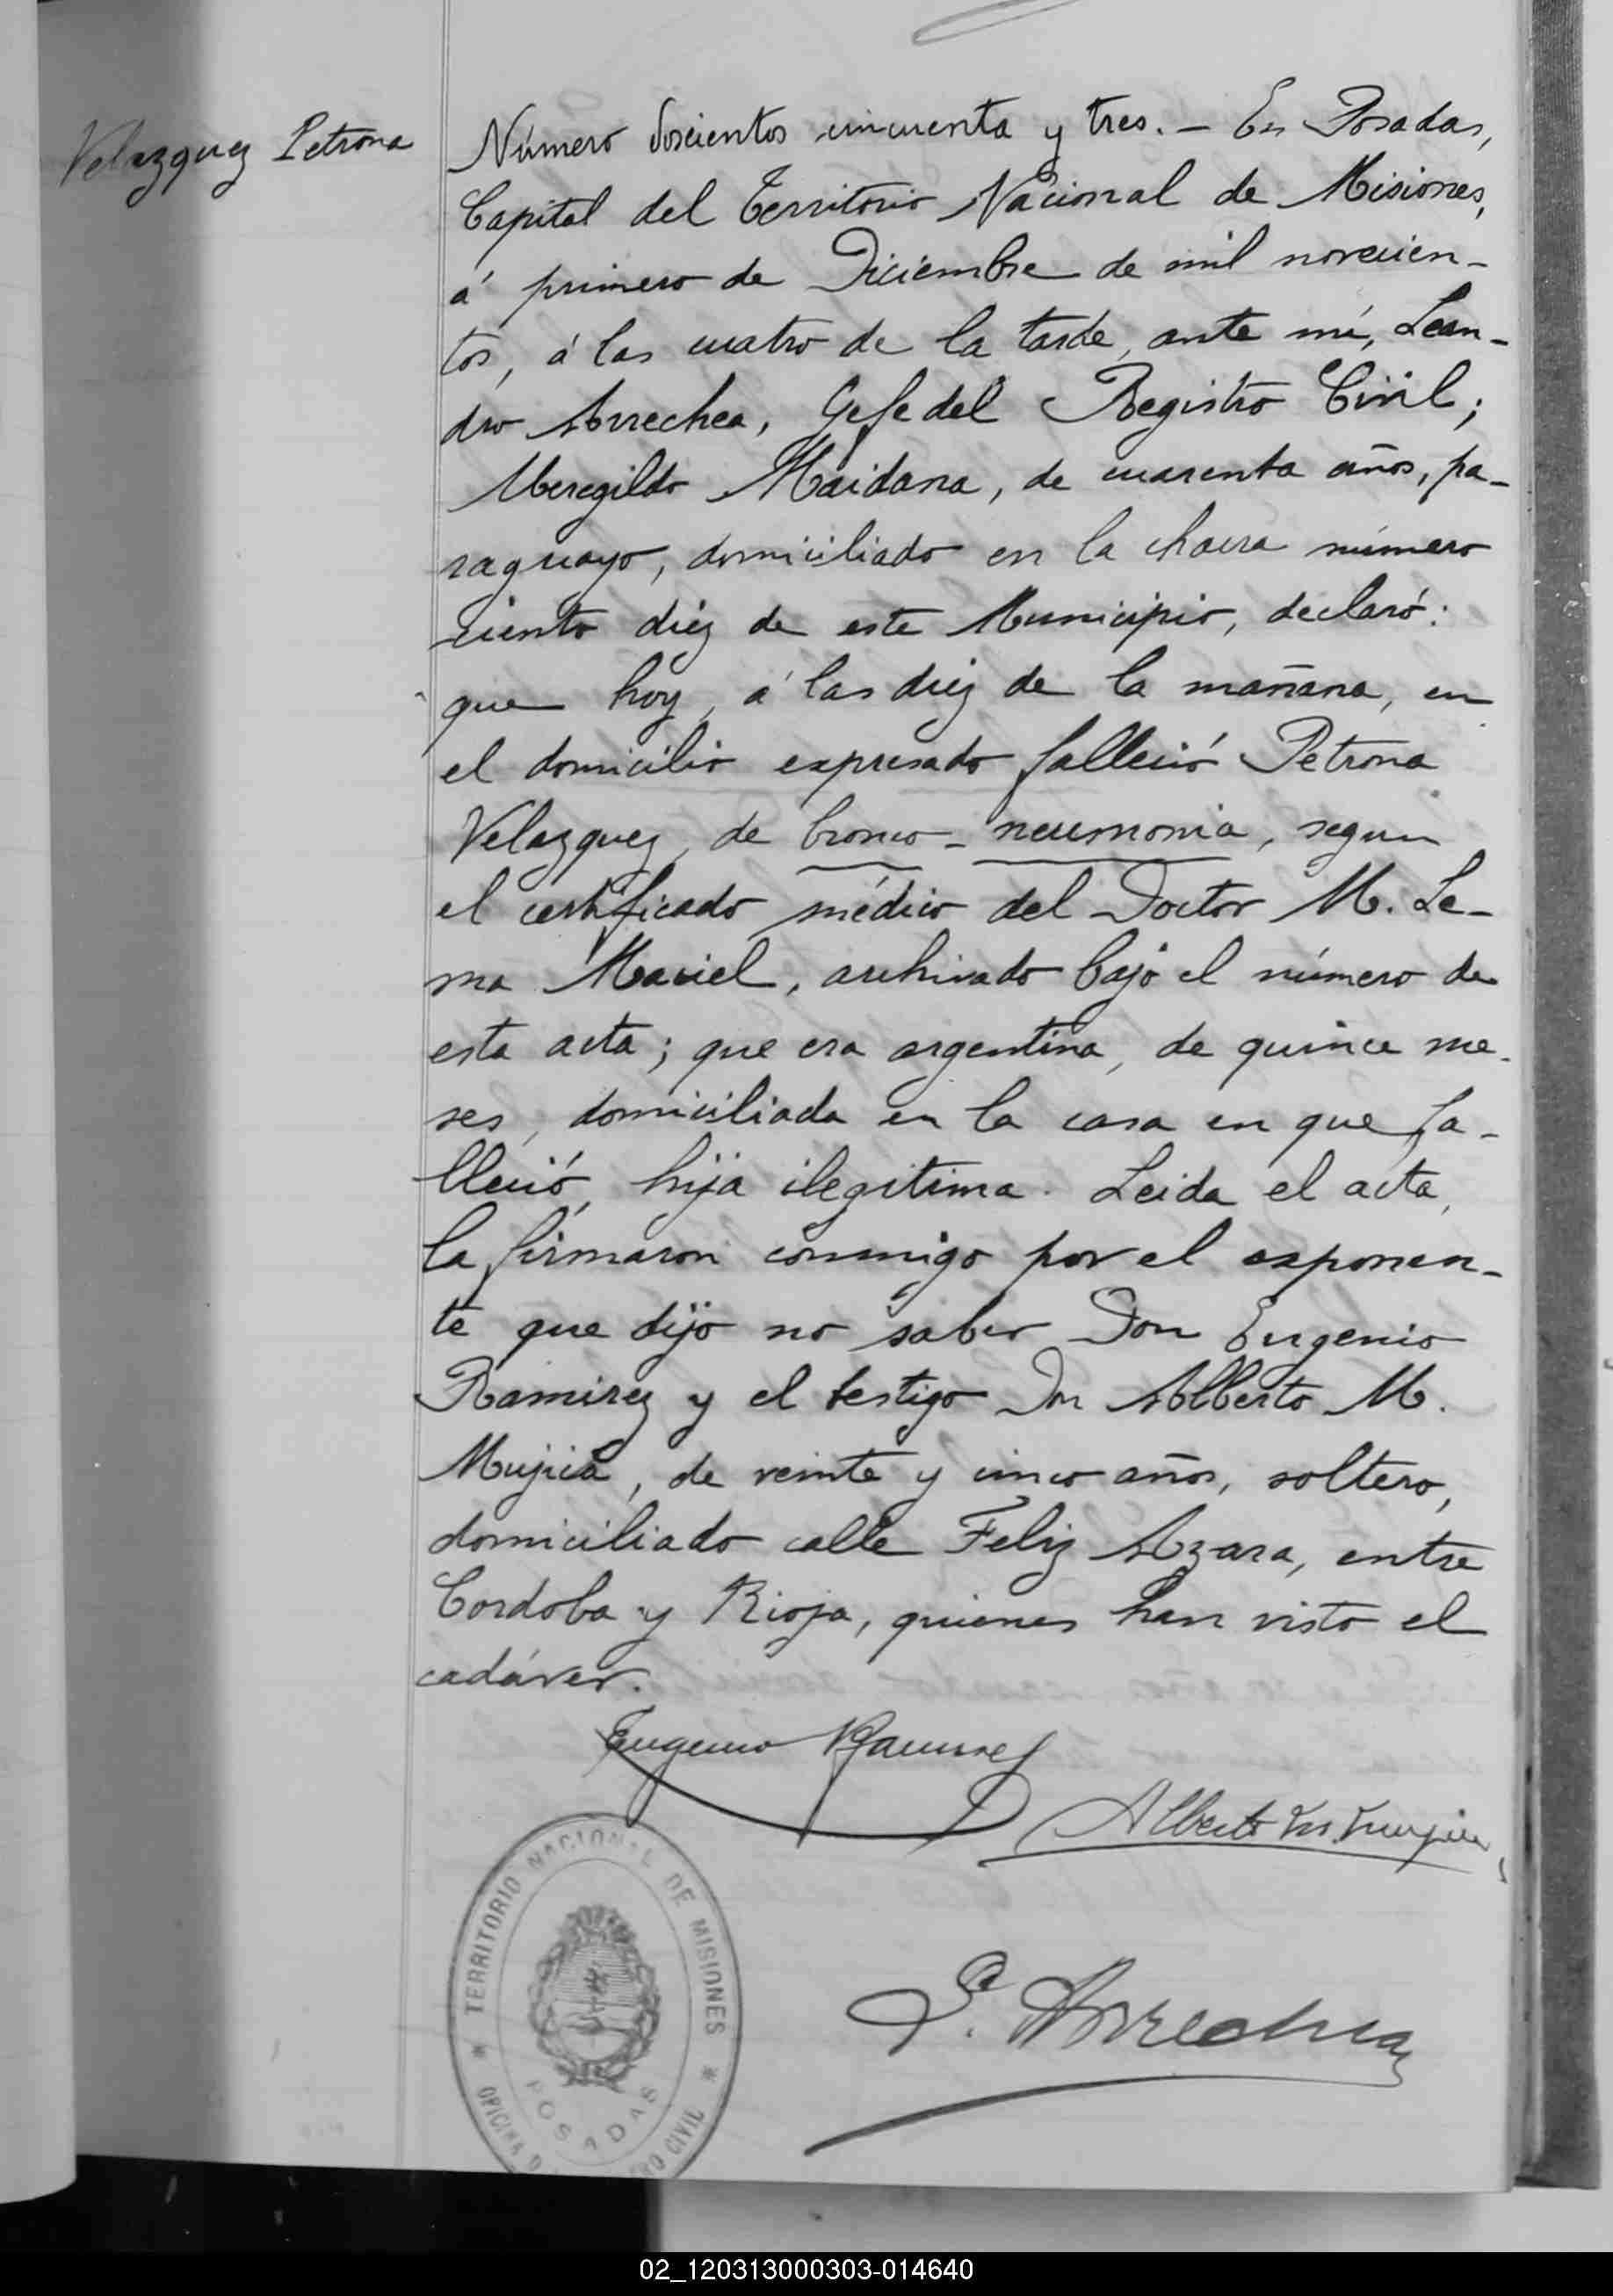 Velazquez Petrona
Número doscientos cincuenta y tres. — En Posadas,
Capital del Territorio Nacional de Misiones,
á primero de Diciembre de mil novecien-
tos, á las cuatro de la tarde, ante mí, Lean-
dro Arrechea, Gefe del Registro Civil;
Meregildo Maidana, de cuarenta años, pa-
raguayo, domiciliado en la chacra número
ciento diez de este Municipio, declaró:
que hoy, á las diez de la mañana, en
el domicilio expresado falleció Petrona
Velazquez, de bronco-neumonia, segun
el certificado médico del Doctor M. Le-
ma Maciel, archivado bajo el número de
esta acta; que era argentina, de quince me-
ses, domiciliada en la casa en que fa-
lleció, hija ilegitima. Leida el acta,
la firmaron conmigo por el exponen-
te que dijo no saber Don Eugenio
Ramirez y el testigo Don Alberto M.
Mujica, de veinte y cinco años, soltero,
domiciliado calle Feliz Azara, entre
Cordoba y Rioja, quienes han visto el
cadáver.
Eugenio Ramirez
Alberto M. Mujica
L. Arrechea
TERRITORIO NACIONAL DE MISIONES
OFICINA D RO CIVIL
POSADAS
02_120313000303-014640